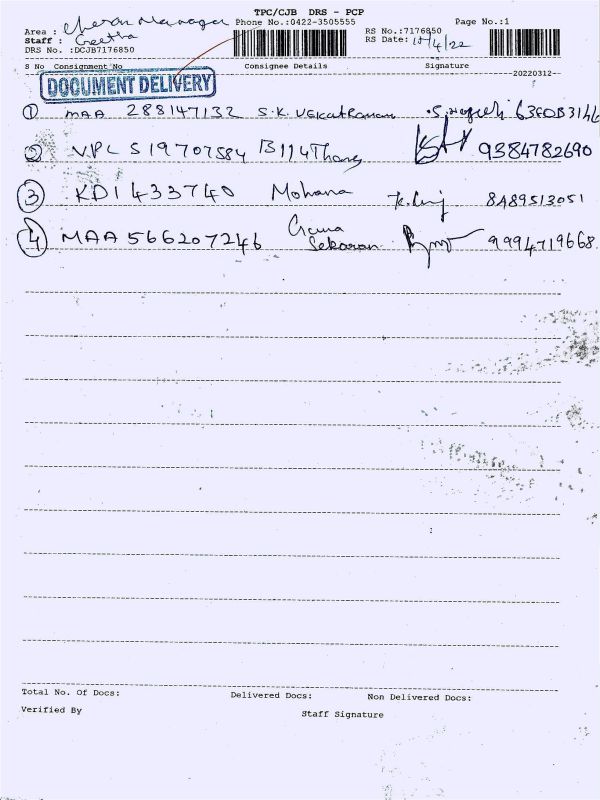 TPC/CJB DRS - PCP
Area : Cheran Managar Phone No.:0422-3505555 RS No.:7176850 Page No.:1
Staff : Geetha RS Date: /4/22
DRS No. :DCJB7176850
S No Consignment No Consignee Details Signature
20220312
DOCUMENT DELIVERY
1 MAA 288147132 S.K. Vekatraman
2 VPL 519707584 9384782690
3 KDI 433740 Mohana 8489513051
4 MAA 566207246 Sekaran 9994719668
Total No. Of Docs: Delivered Docs: Non Delivered Docs:
Verified By Staff Signature